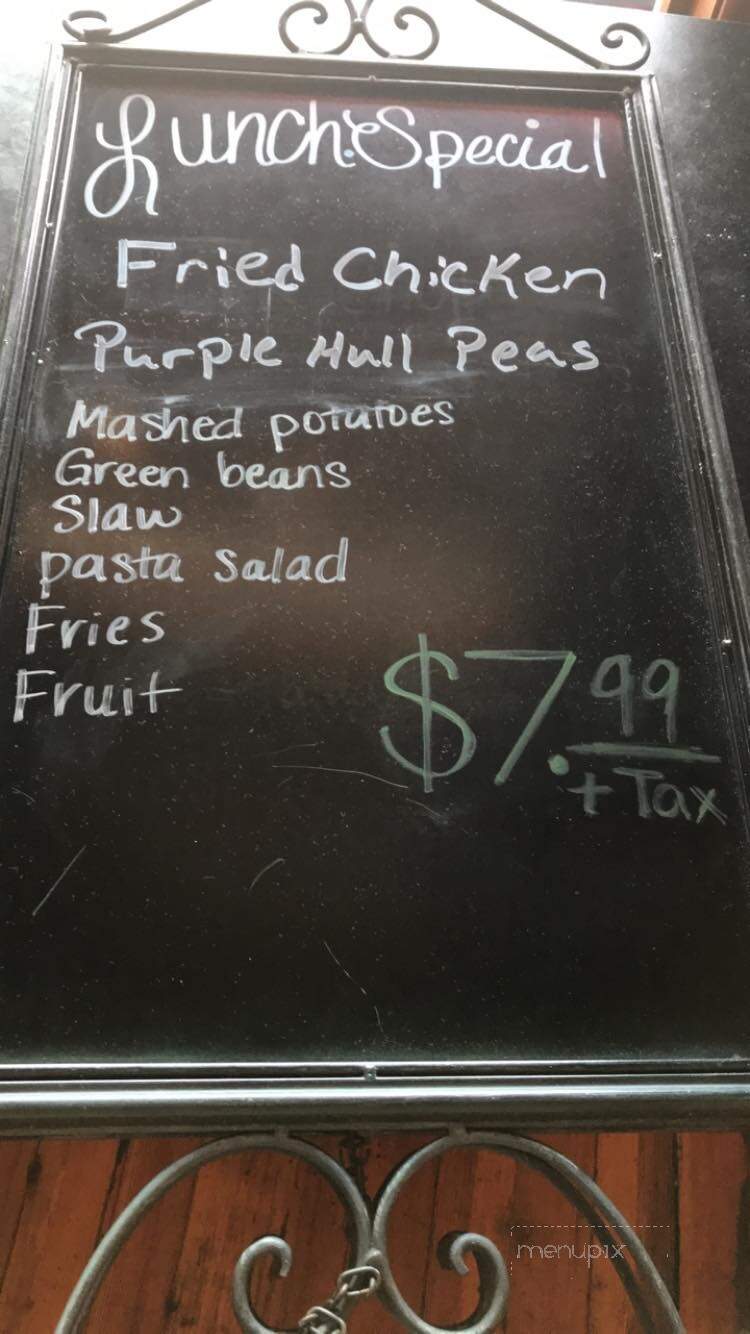 Lunch Special
Fried Chicken
Purple Hull Peas
Mashed potatoes
Green beans
Slaw
pasta salad
Fries
Fruit
$7.99
+ Tax
menupix